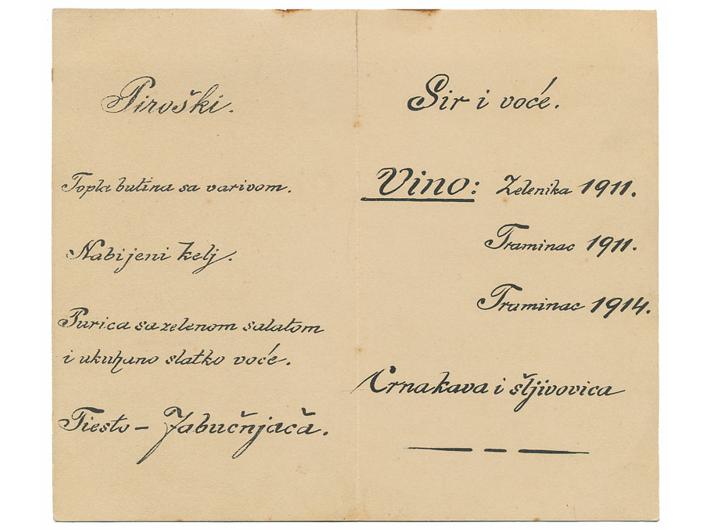 Piroški.
Topla butina sa varivom.
Nabijeni kelj.
Purica sa zelenom salatom
i ukuhano slatko voće.
Tiesto – Jabučnjača.
Sir i voće.
Vino: Zelenika 1911.
Traminac 1911.
Traminac 1914.
Crna kava i šljivovica